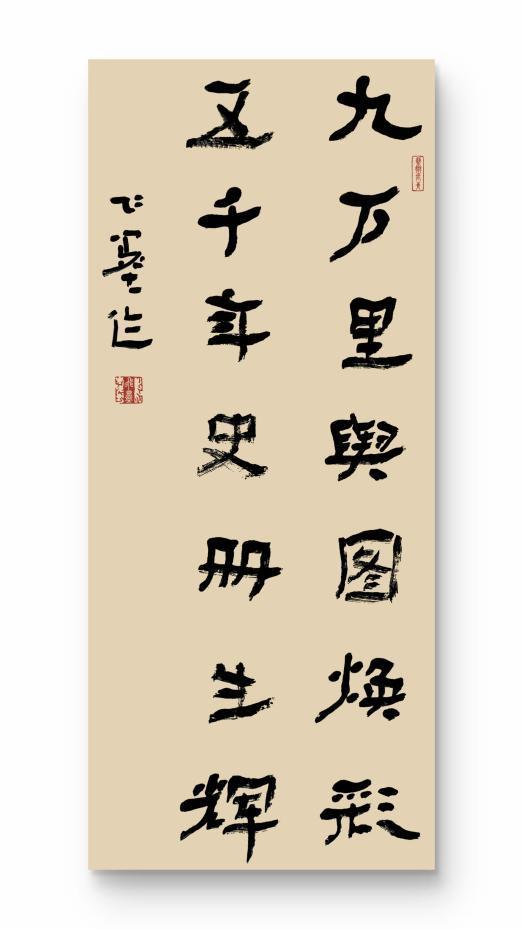 九万里舆图焕彩
五千年史册生辉
作